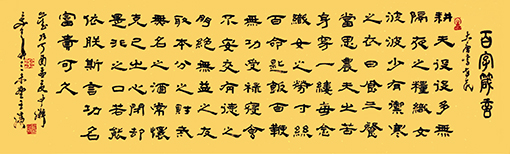 百字箴言
大唐李世民
耕夫役役多無
隔夜之糧織女
波波少有禦寒
之衣日食三餐
當思農夫之苦
身穿一縷每念
織女之勞寸絲
百命匙飯百鞭
無功受祿寢食
不安交有德之
朋絕無益之友
取本分之財戒
無名之酒常懷
克己之心閉却
是非之口若能
依朕斯言功名
富貴可久
丁酉年